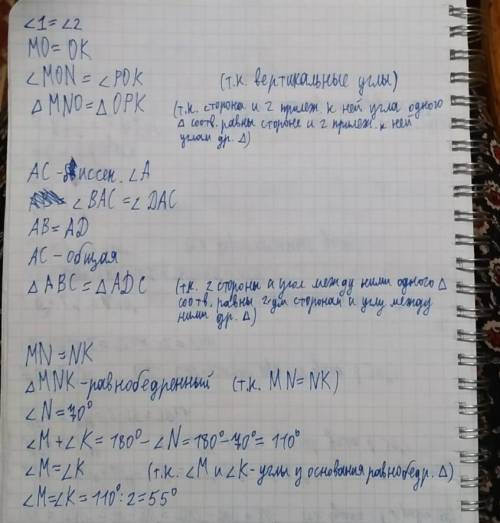 ∠1=∠2
MO=OK
∠MON = ∠POK (т.к. вертикальные углы)
△MNO=△OPK (т.к. сторона и 2 прилеж. к ней угла одного
△ соотв. равны стороне и 2 прилеж. к ней
углам др. △)
AC - биссек. ∠A
∠BAC=∠DAC
AB=AD
AC - общая
△ABC=△ADC (т.к. 2 стороны и угол между ними одного △
соотв. равны 2-ум сторонам и углу между
ними др. △)
MN=NK
△MNK - равнобедренный (т.к. MN=NK)
∠N=70°
∠M+∠K=180°-∠N=180°-70°=110°
∠M=∠K (т.к. ∠M и ∠K - углы у основания равнобедр. △)
∠M=∠K=110°:2=55°